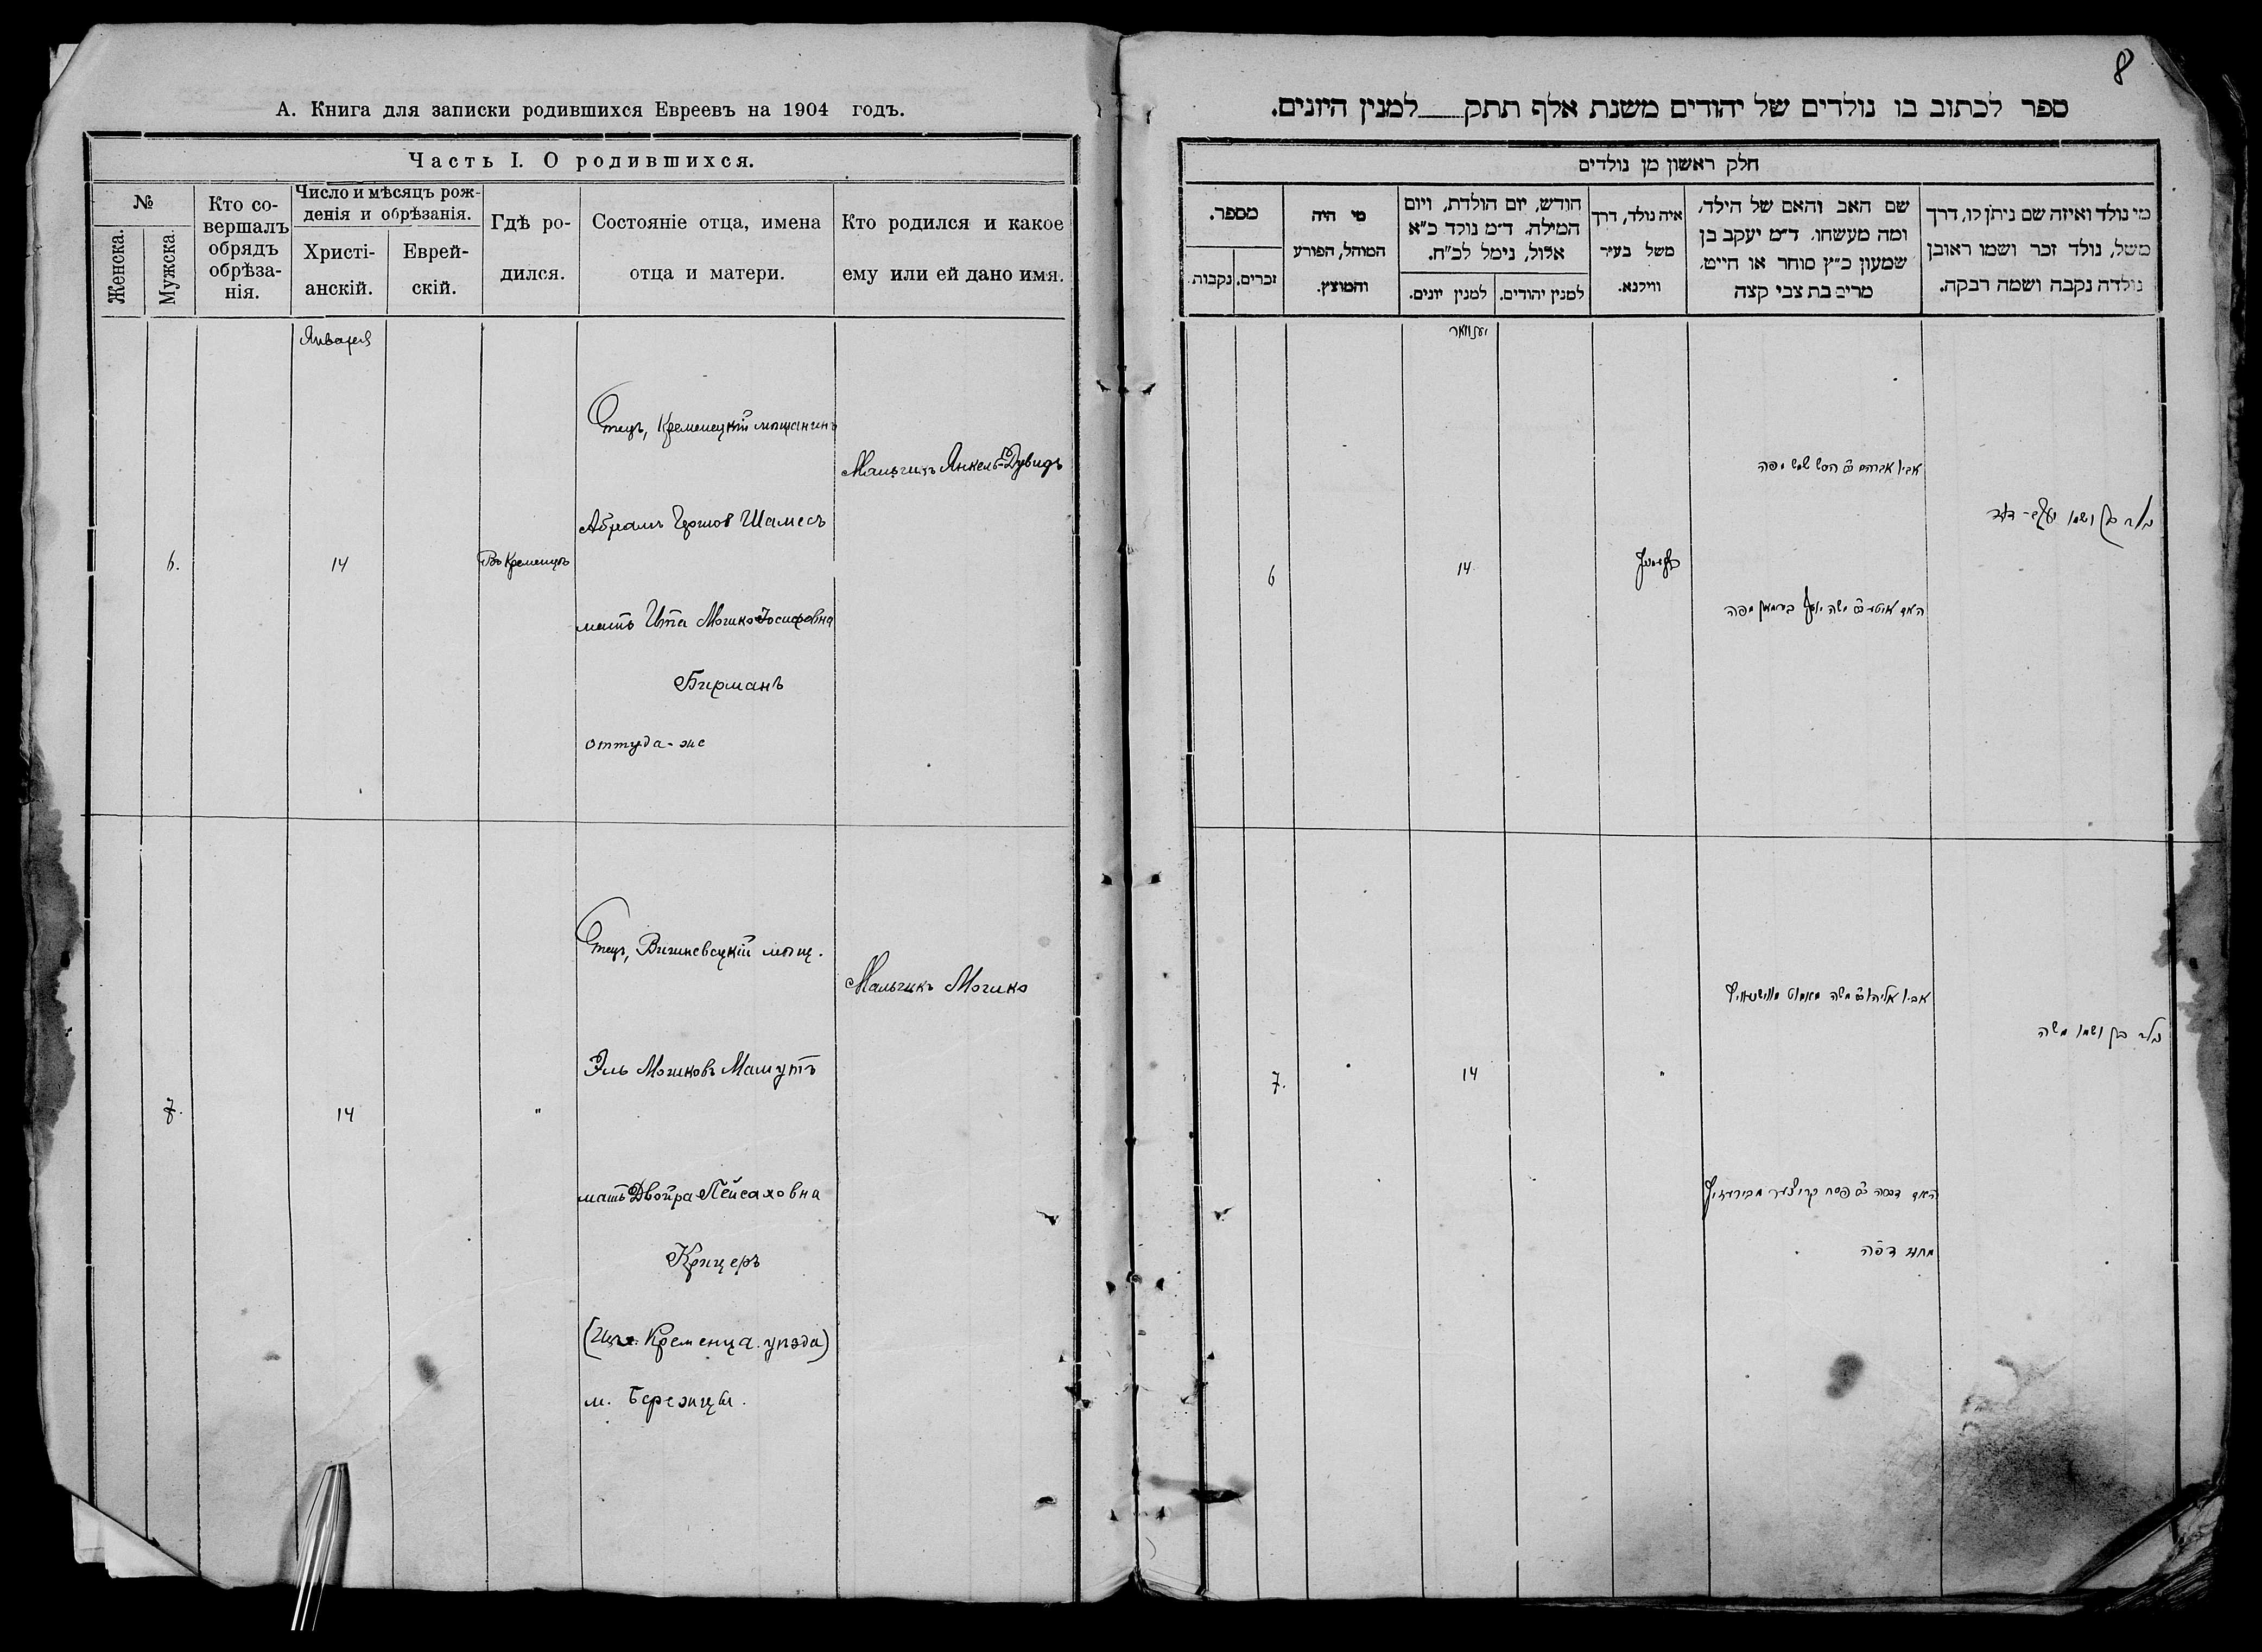 А. Книга для записки родившихся Евреевъ на 1904 годъ.
Часть I. О родившихся.
№
Женска.
Мужска.
Кто со-
вершалъ
обрядъ
обрѣза-
нія.
Число и мѣсяцъ рож-
денія и обрѣзанія.
Христі-
анскій.
Еврей-
скій.
Гдѣ ро-
дился.
Состояніе отца, имена
отца и матери.
Кто родился и какое
ему или ей дано имя.
Января
6.
14
Въ Кременцѣ
Отецъ, Кременецкій мѣщанинъ
Абрамъ Гершов Шамесъ
мать Ита Мошко-Іосифовна
Бирманъ
оттуда-же
Мальчикъ Янкель-Дувидъ
7.
14
"
Отецъ, Вишневецкій мѣщ.
Эль Мошковъ Мамутъ
мать Двойра Пейсаховна
Крицеръ
Кременца. уѣзда)
м. Бережцы.
Мальчикъ Мошко
8
ספר לכתוב בו נולדים של יהודים משנת אלף תתק למנין היונים.
חלק ראשון מן נולדים
מספר.
זכרים.
נקבות.
מי היה
המוהל, הפורע
והמוצץ.
חודש, יום הולדת, ויום
המילה, ד״מ נולד כ״א
אלול, נימל לכ״ח.
למנין יונים.
למנין יהודים.
איה נולד, דרך
משל בעיר
ווילנא.
שם האב והאם של הילד,
ומה מעשהו. ד״מ יעקב בן
שמעון כ״ץ סוחר או חייט,
מרים בת צבי קצה
מי נולד ואיזה שם ניתן לו, דרך
משל, נולד זכר ושמו ראובן
נולדה נקבה ושמה רבקה.
יענוואר
6
14
אביו אברהם ב״ה הערש שמש מפה
האם איטא ב״ר משה יוסף בירמאן מפה
נולד בן ושמו יעקב-דוד
7.
14
"
אביו אליהו ב״ר משה מאמוט
האם דבורה ב״ר פסח קריצער
נולד בן ושמו משה